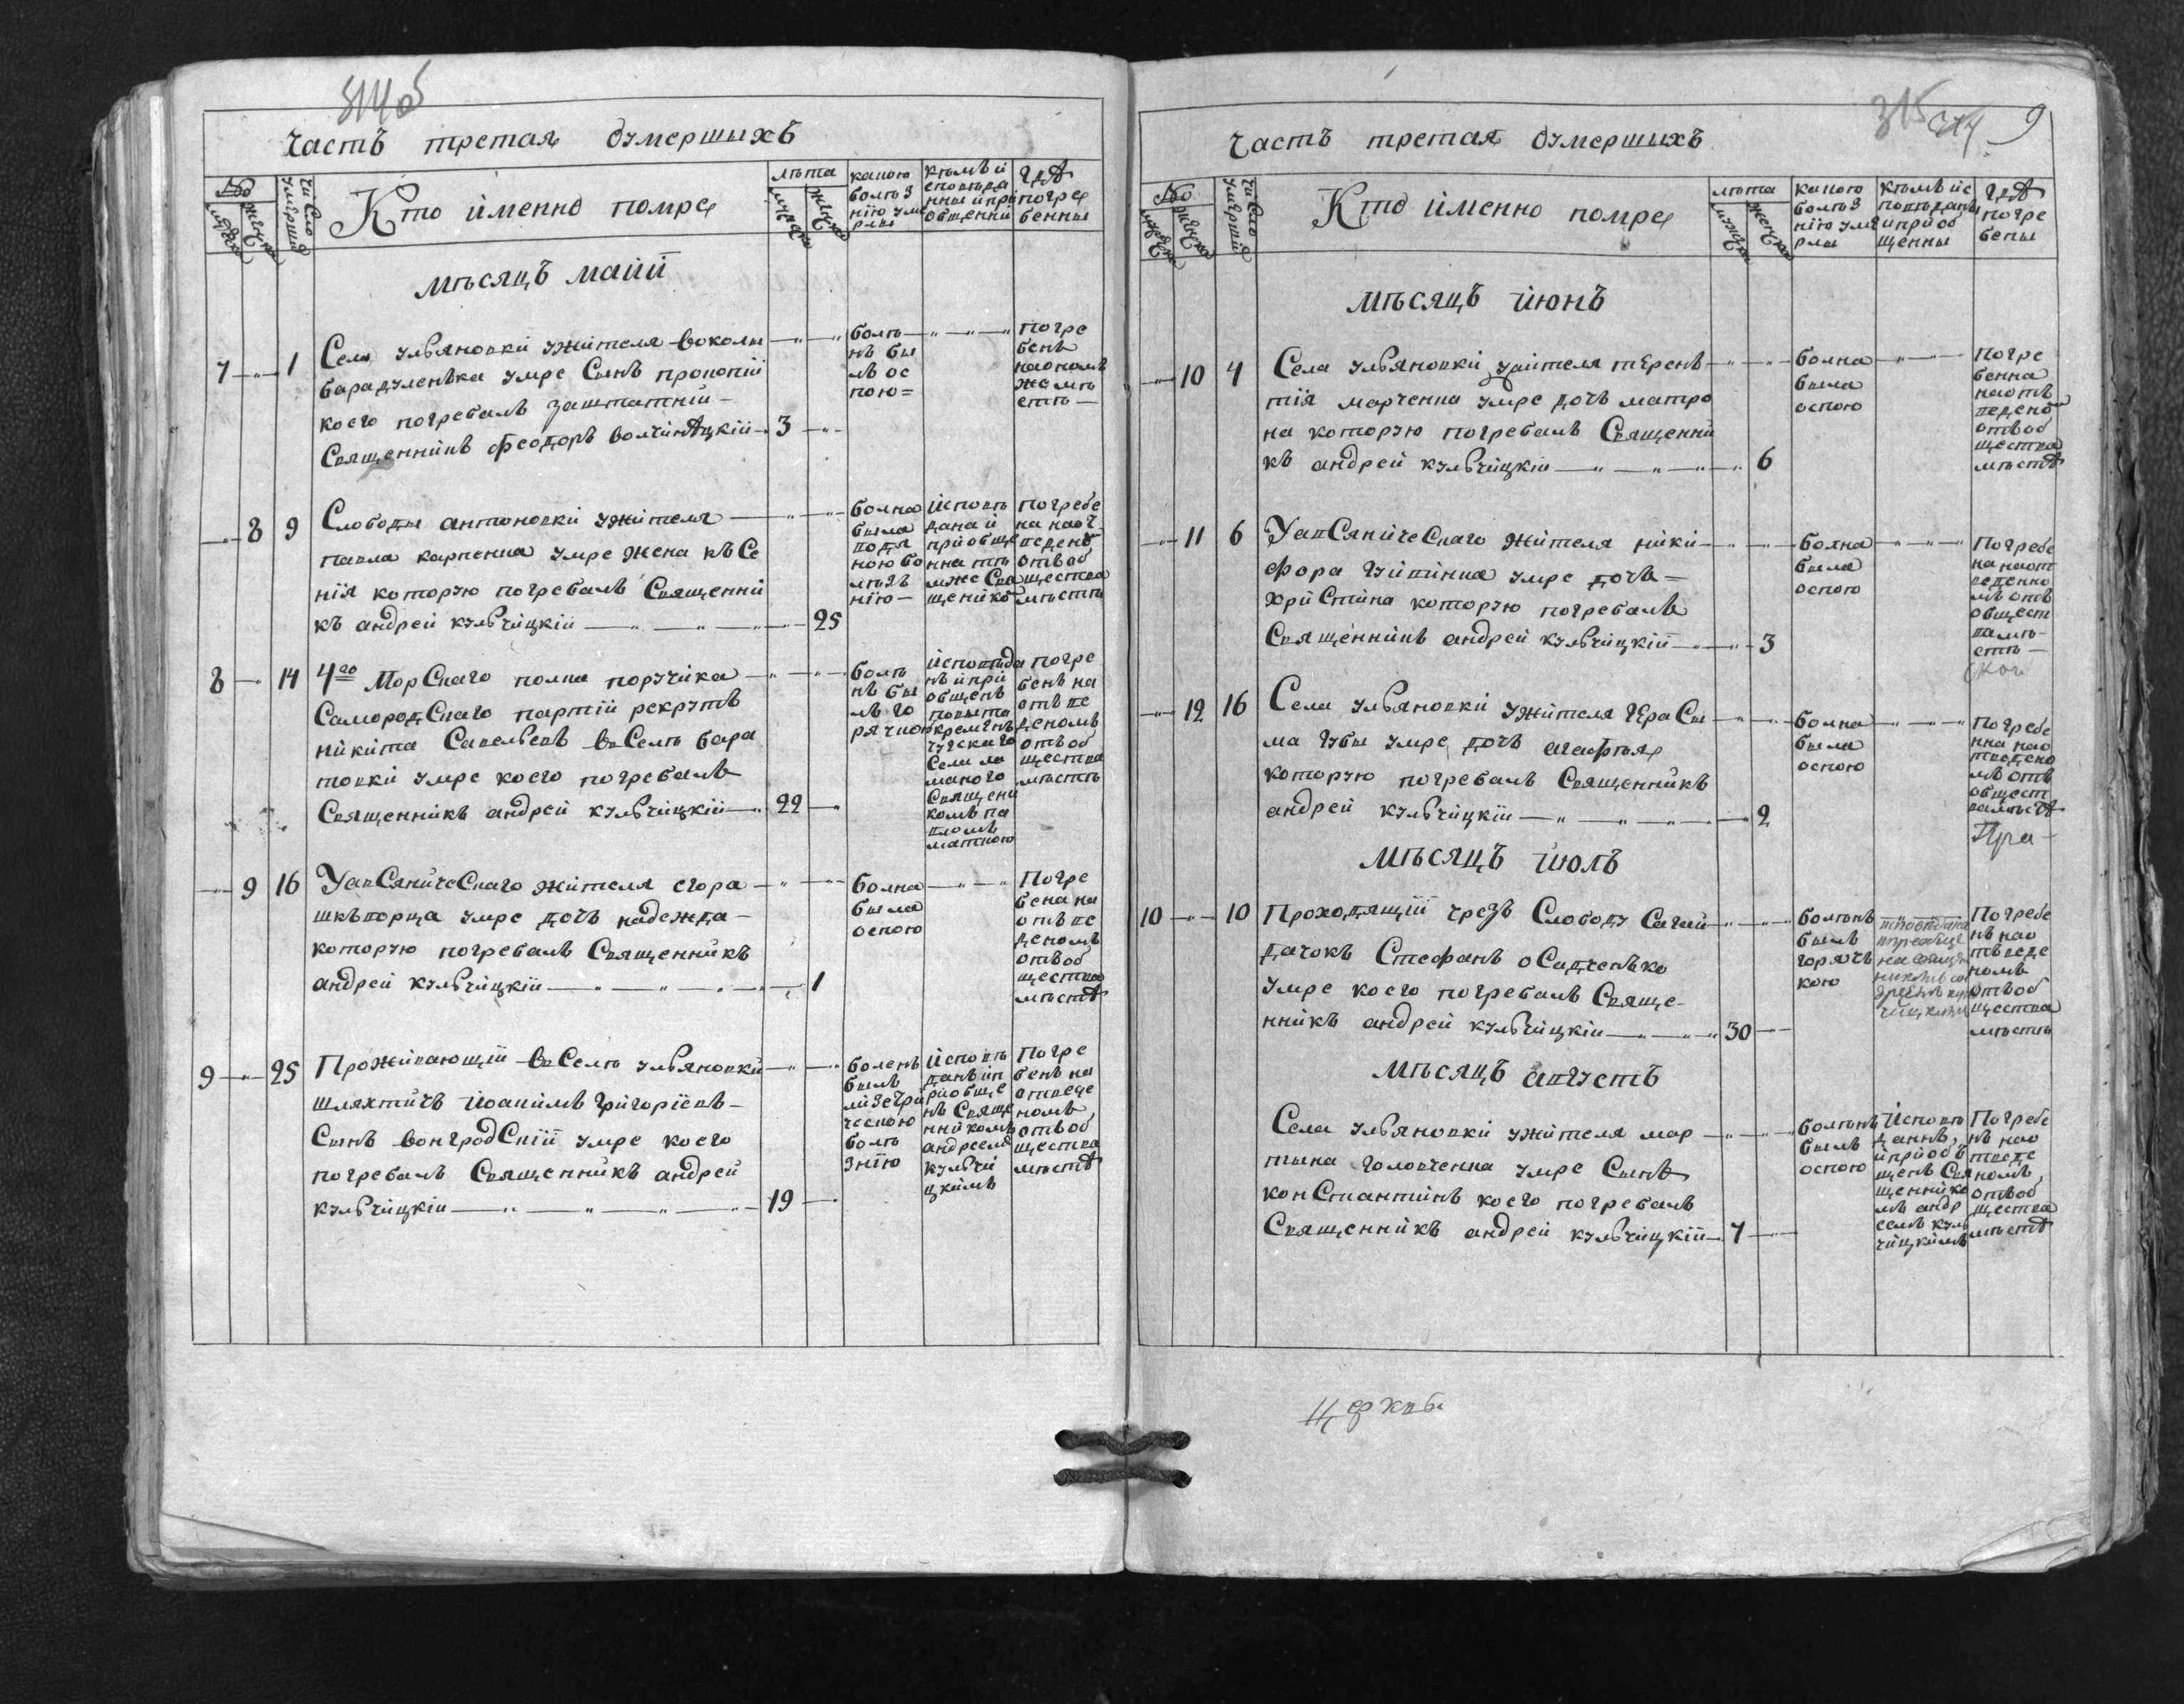 314об
Часть третая о умершыхъ
№
мужеска
женска
Число умершія
Кто именно помре
лѣта
мужеска
женска
какою болѣзнію умерлы
кѣмъ исповѣданны и приобщенны
гдѣ погребенны
мѣсяцъ маий
7 1
Села ульяновки жителя воколы
барадуленька умре Сынъ прокопій
коего погребалъ заштатній
Священникъ феодоръ волчинѣцкій 3
болѣ
нъ бы
лъ ос
пою
погре
бенъ
наономъ
же мѣ
стѣ
8 9
Слободы антоновки жителя
павла карпенка умре жена ксе
нія которую погребалъ Священни
къ андрей кульчицкій 25
болна
была
водя
ною бо
лѣзъ
нію
исповѣ
дана и
приобще
нна тѣ
мже Свя
щенико
погребе
на наот
ведено
отъоб
щества
мѣстѣ
8 14
4го МорСкаго полка поручика
СамородСкаго партіи рекрутъ
никита Савельевъ въ Селѣ бара
товки умре коего погребалъ
Священникъ андрей кульчицкій 22
болѣ
нъ бы
лъ го
рячною
исповѣда
нъ и при
общенъ
кременъ
чугскаго
Села ла
маного
Священи
комъ па
вломъ
погре
бенъ на
отъ ве
деномъ
отъоб
щества
мѣстѣ
9 16
УавСяничеСкаго жителя егора
шкъворца умре дочъ надежда
которую погребалъ Священникъ
андрей кульчицкій 1
болна
была
оспою
Погре
бена на
отъ ве
деномъ
отъоб
щества
мѣстѣ
9 25
Проживающій въ Селѣ ульяновки
шляхтичъ иоакимъ григоріевъ
Сынъ вонгродСкій умре коего
погребалъ Священникъ андрей
кульчицкій 19
боленъ
былъ
мизегри
ческою
болѣ
знію
исповѣ
данъ ип
риобще
нъ Свяще
нникомъ
андреемъ
кульчи
цкимъ
Погре
бенъ на
отведе
номъ
отъоб
щества
мѣстѣ
315 314 9
Часть третая о умершыхъ
№
мужеска
женска
Число умершія
Кто именно помре
лѣта
мужеска
женска
какою болѣзнію умерлы
кѣмъ исповѣданы и приобщенны
гдѣ погребены
мѣсяцъ июнь
10 4
Села ульяновки жителя терень
тія марченка умре дочъ матро
на которую погребалъ Священни
къ андрей кульчицкій 6
болна
была
оспою
Погре
бенна
наотъ
ведено
отъоб
щества
мѣстѣ
11 6
УавСяничеСкаго жителя ники
фора чипинка умре дочъ
хриСтина которую погребалъ
Священникъ андрей кульчицкій 3
болна
была
оспою
Погребе
на наот
веденно
мъ отъ
общест
ва мѣ
стѣ
12 16
Села ульяновки жителя гераСы
ма губы умре дочъ агафья
которую погребалъ Священникъ
андрей кульчицкій 2
болна
была
оспою
Погребе
нна нао
тведено
мъ отъ
общест
ва мѣстѣ
мѣсяцъ июль
10 10
Проходящій чрезъ Слободу Сагай
дачокъ Стефанъ оСадченъко
умре коего погребалъ Свяще
нникъ андрей кульчицкій 30
боленъ
былъ
горячъ
кою
Погребе
нъ нао
тъведе
номъ
отъоб
щества
мѣстѣ
мѣсяцъ августъ
Села ульяновки жителя мар
тына головченка умре Сынъ
конСтантинъ коего погребалъ
Священникъ андрей кульчицкій 7
боленъ
былъ
оспою
исповѣ
даннъ
и приоб
щенъ Свя
щеннико
мъ андр
еемъ куль
чицкимъ
Погребе
нъ нао
тведе
номъ
отъоб
щества
мѣстѣ